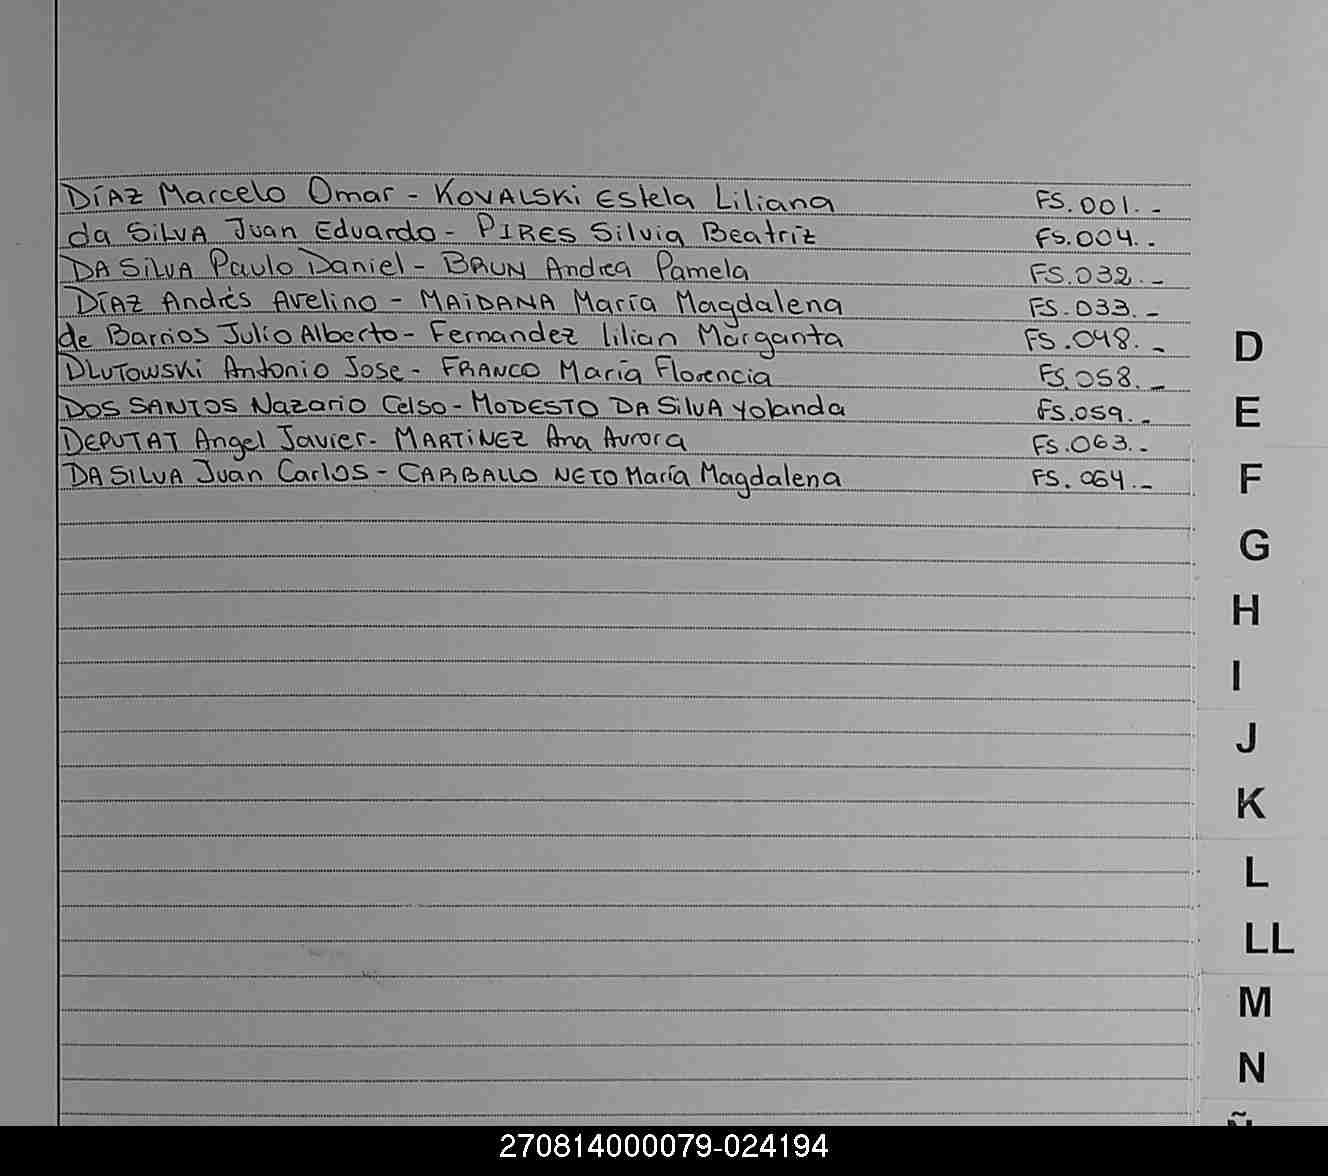 DíAZ Marcelo Omar - KOVALSKi Estela Liliana FS.001.-
da SiLVA Juan Eduardo - PIRES Silvia Beatriz FS.004.-
DA SiLVA Paulo Daniel - BRUN Andrea Pamela FS.032.-
DíAZ Andrés Avelino - MAiDANA María Magdalena FS.033.-
de Barrios Julio Alberto - Fernandez lilian Margarita FS.048.-
DLUTOWSKi Antonio Jose - FRANCO María Florencia FS.058.-
DOS SANTOS Nazario Celso - MODESTO DA SilVA Yolanda FS.059.-
DEPUTAT Angel Javier - MARTiNEZ Ana Aurora FS.063.-
DA SILVA Juan Carlos - CARBALLO NETO María Magdalena FS.064.-
D
E
F
G
H
I
J
K
L
LL
M
N
Ñ
270814000079-024194